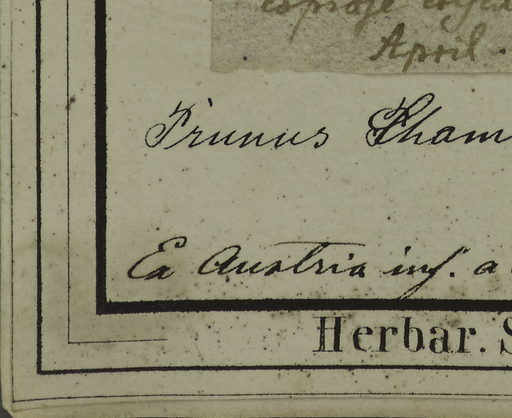 April.
Prunus Cham
Ex Austria inf. a
Herbar. S